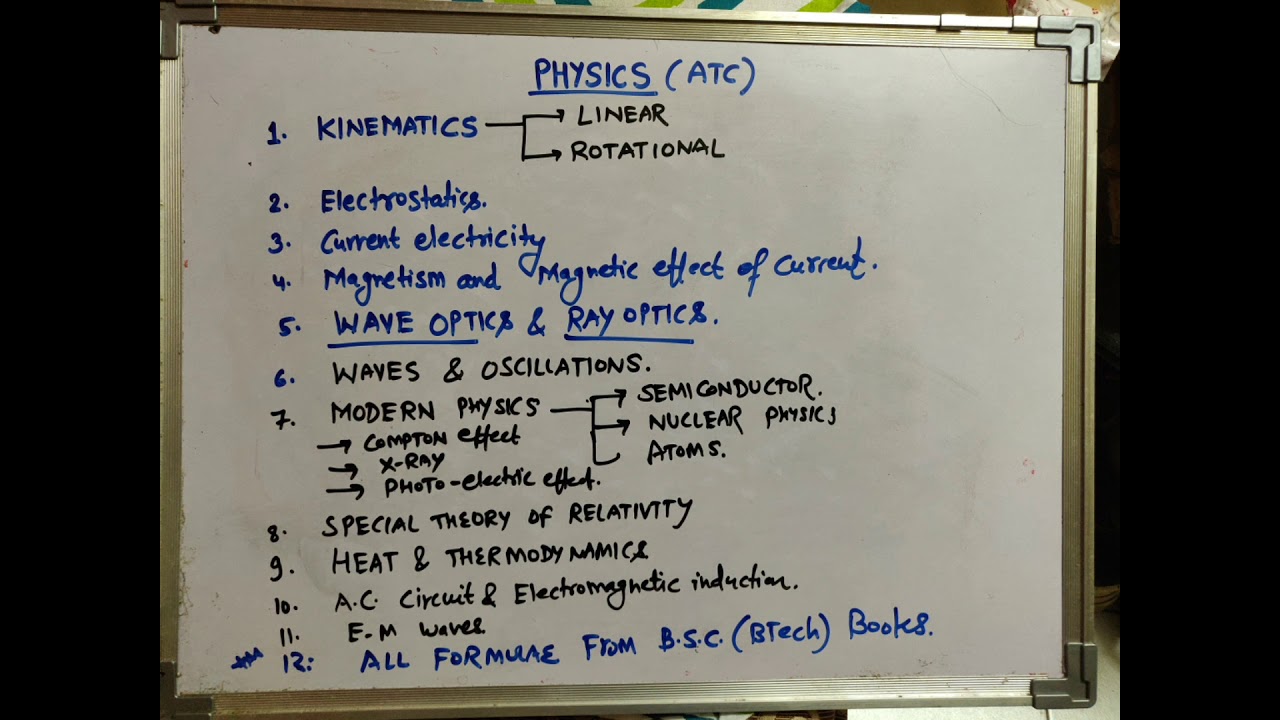 PHYSICS (ATC)
1. KINEMATICS → LINEAR
→ ROTATIONAL
2. Electrostatics.
3. Current electricity
4. Magnetism and Magnetic effect of Current.
5. WAVE OPTICS & RAY OPTICS.
6. WAVES & OSCILLATIONS.
7. MODERN PHYSICS → SEMICONDUCTOR.
→ NUCLEAR PHYSICS
ATOMS.
→ COMPTON effect
→ X-RAY
→ PHOTO-electric effect.
8. SPECIAL THEORY OF RELATIVITY
9. HEAT & THERMODYNAMICS
10. A.C. Circuit & Electromagnetic induction.
11. E-M waves.
*** 12: ALL FORMULAE FROM B.S.C. (BTech) Books.